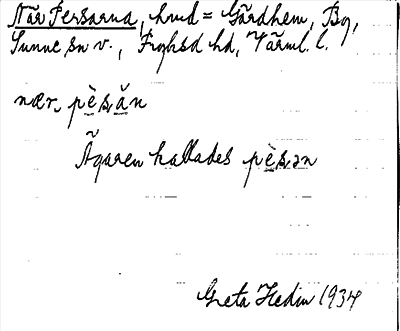 När Persarna, hmd = Gärdhem, By,
Sunne sn v., Fryksd hd, Värml. l.
nær pèsăn
Ägaren kallades pèsən
Greta Hedin 1934